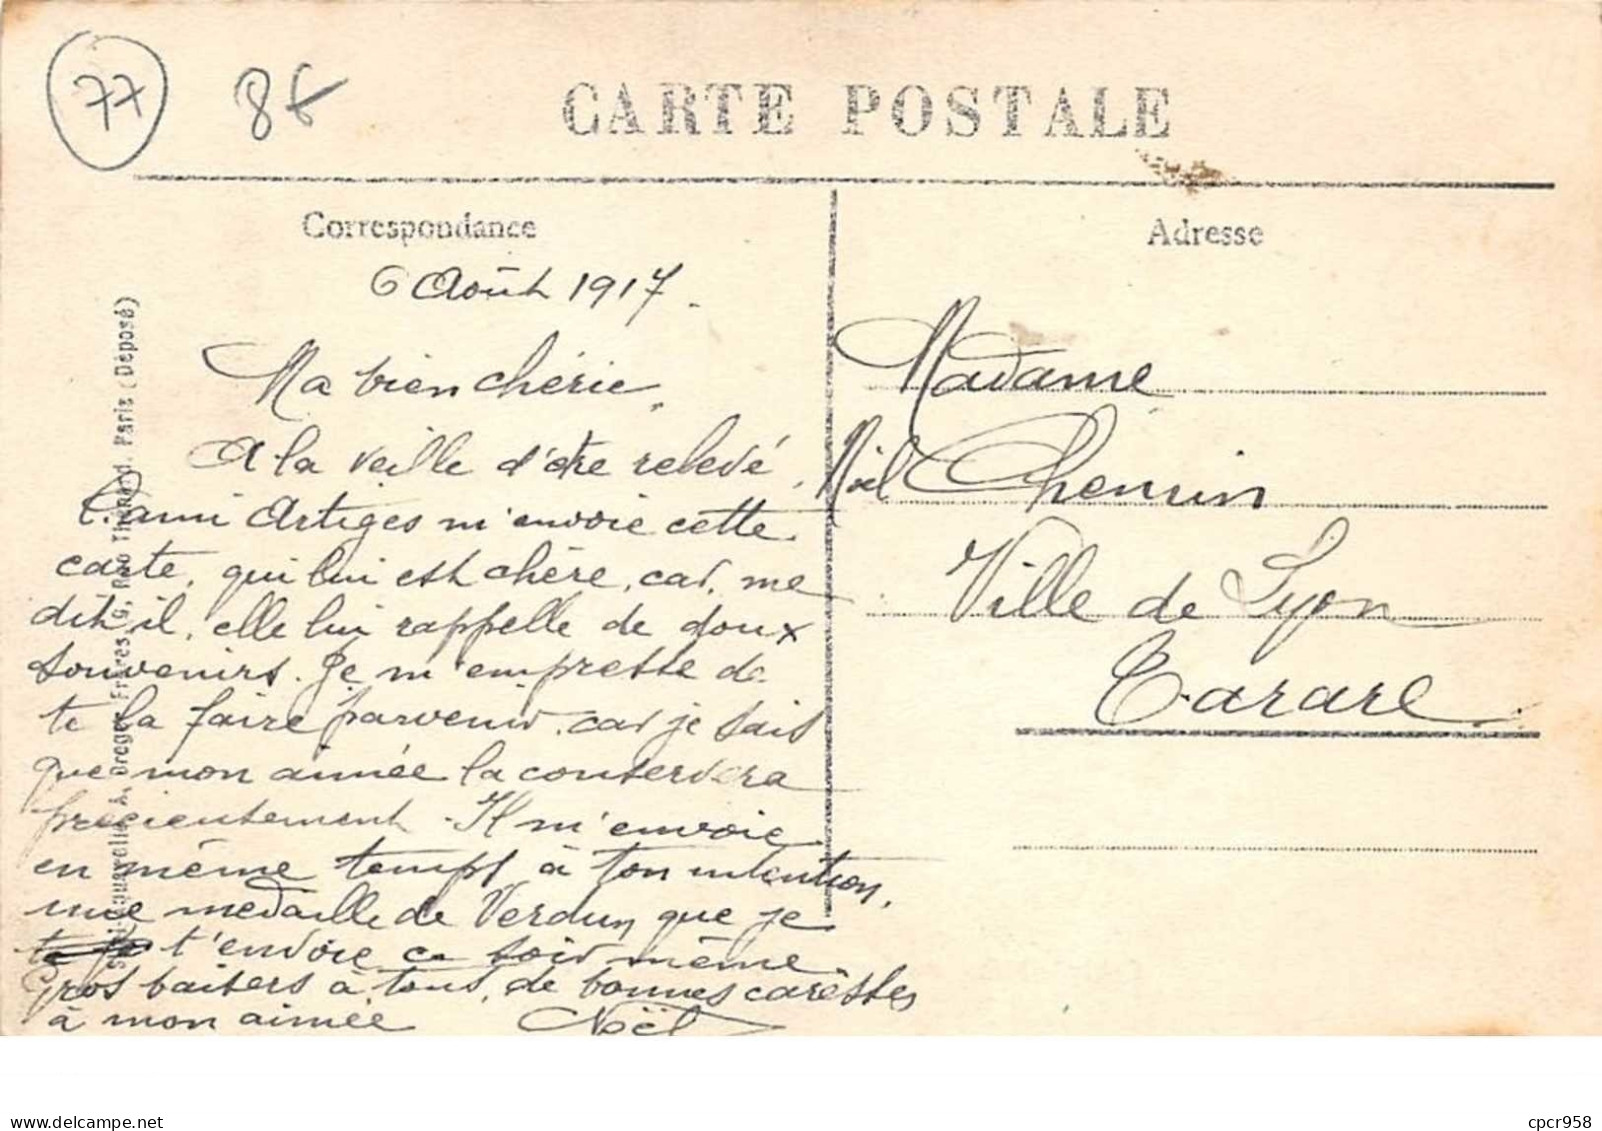 77 8€
CARTE POSTALE
Correspondance
Adresse
6 Août 1917.
Ma bien chérie,
A la veille d'être relevé,
l'ami Artiges m'envoie cette
carte, qui lui est chère, car, me
dit il, elle lui rappelle de doux
souvenirs. Je m'empresse de
te la faire parvenir, car je sais
que mon aimée la conservera
précieusement. Il m'envoie
en même temps à ton intention,
une médaille de Verdun que je
t'envoie ce soir même.
Gros baisers à tous, de bonnes caresses
à mon aimée Noël
Madame
Noël Chemin
Ville de Lyon
Tarare
Dreger Frères
Paris (Déposé)
delcampe.net
cpcr958